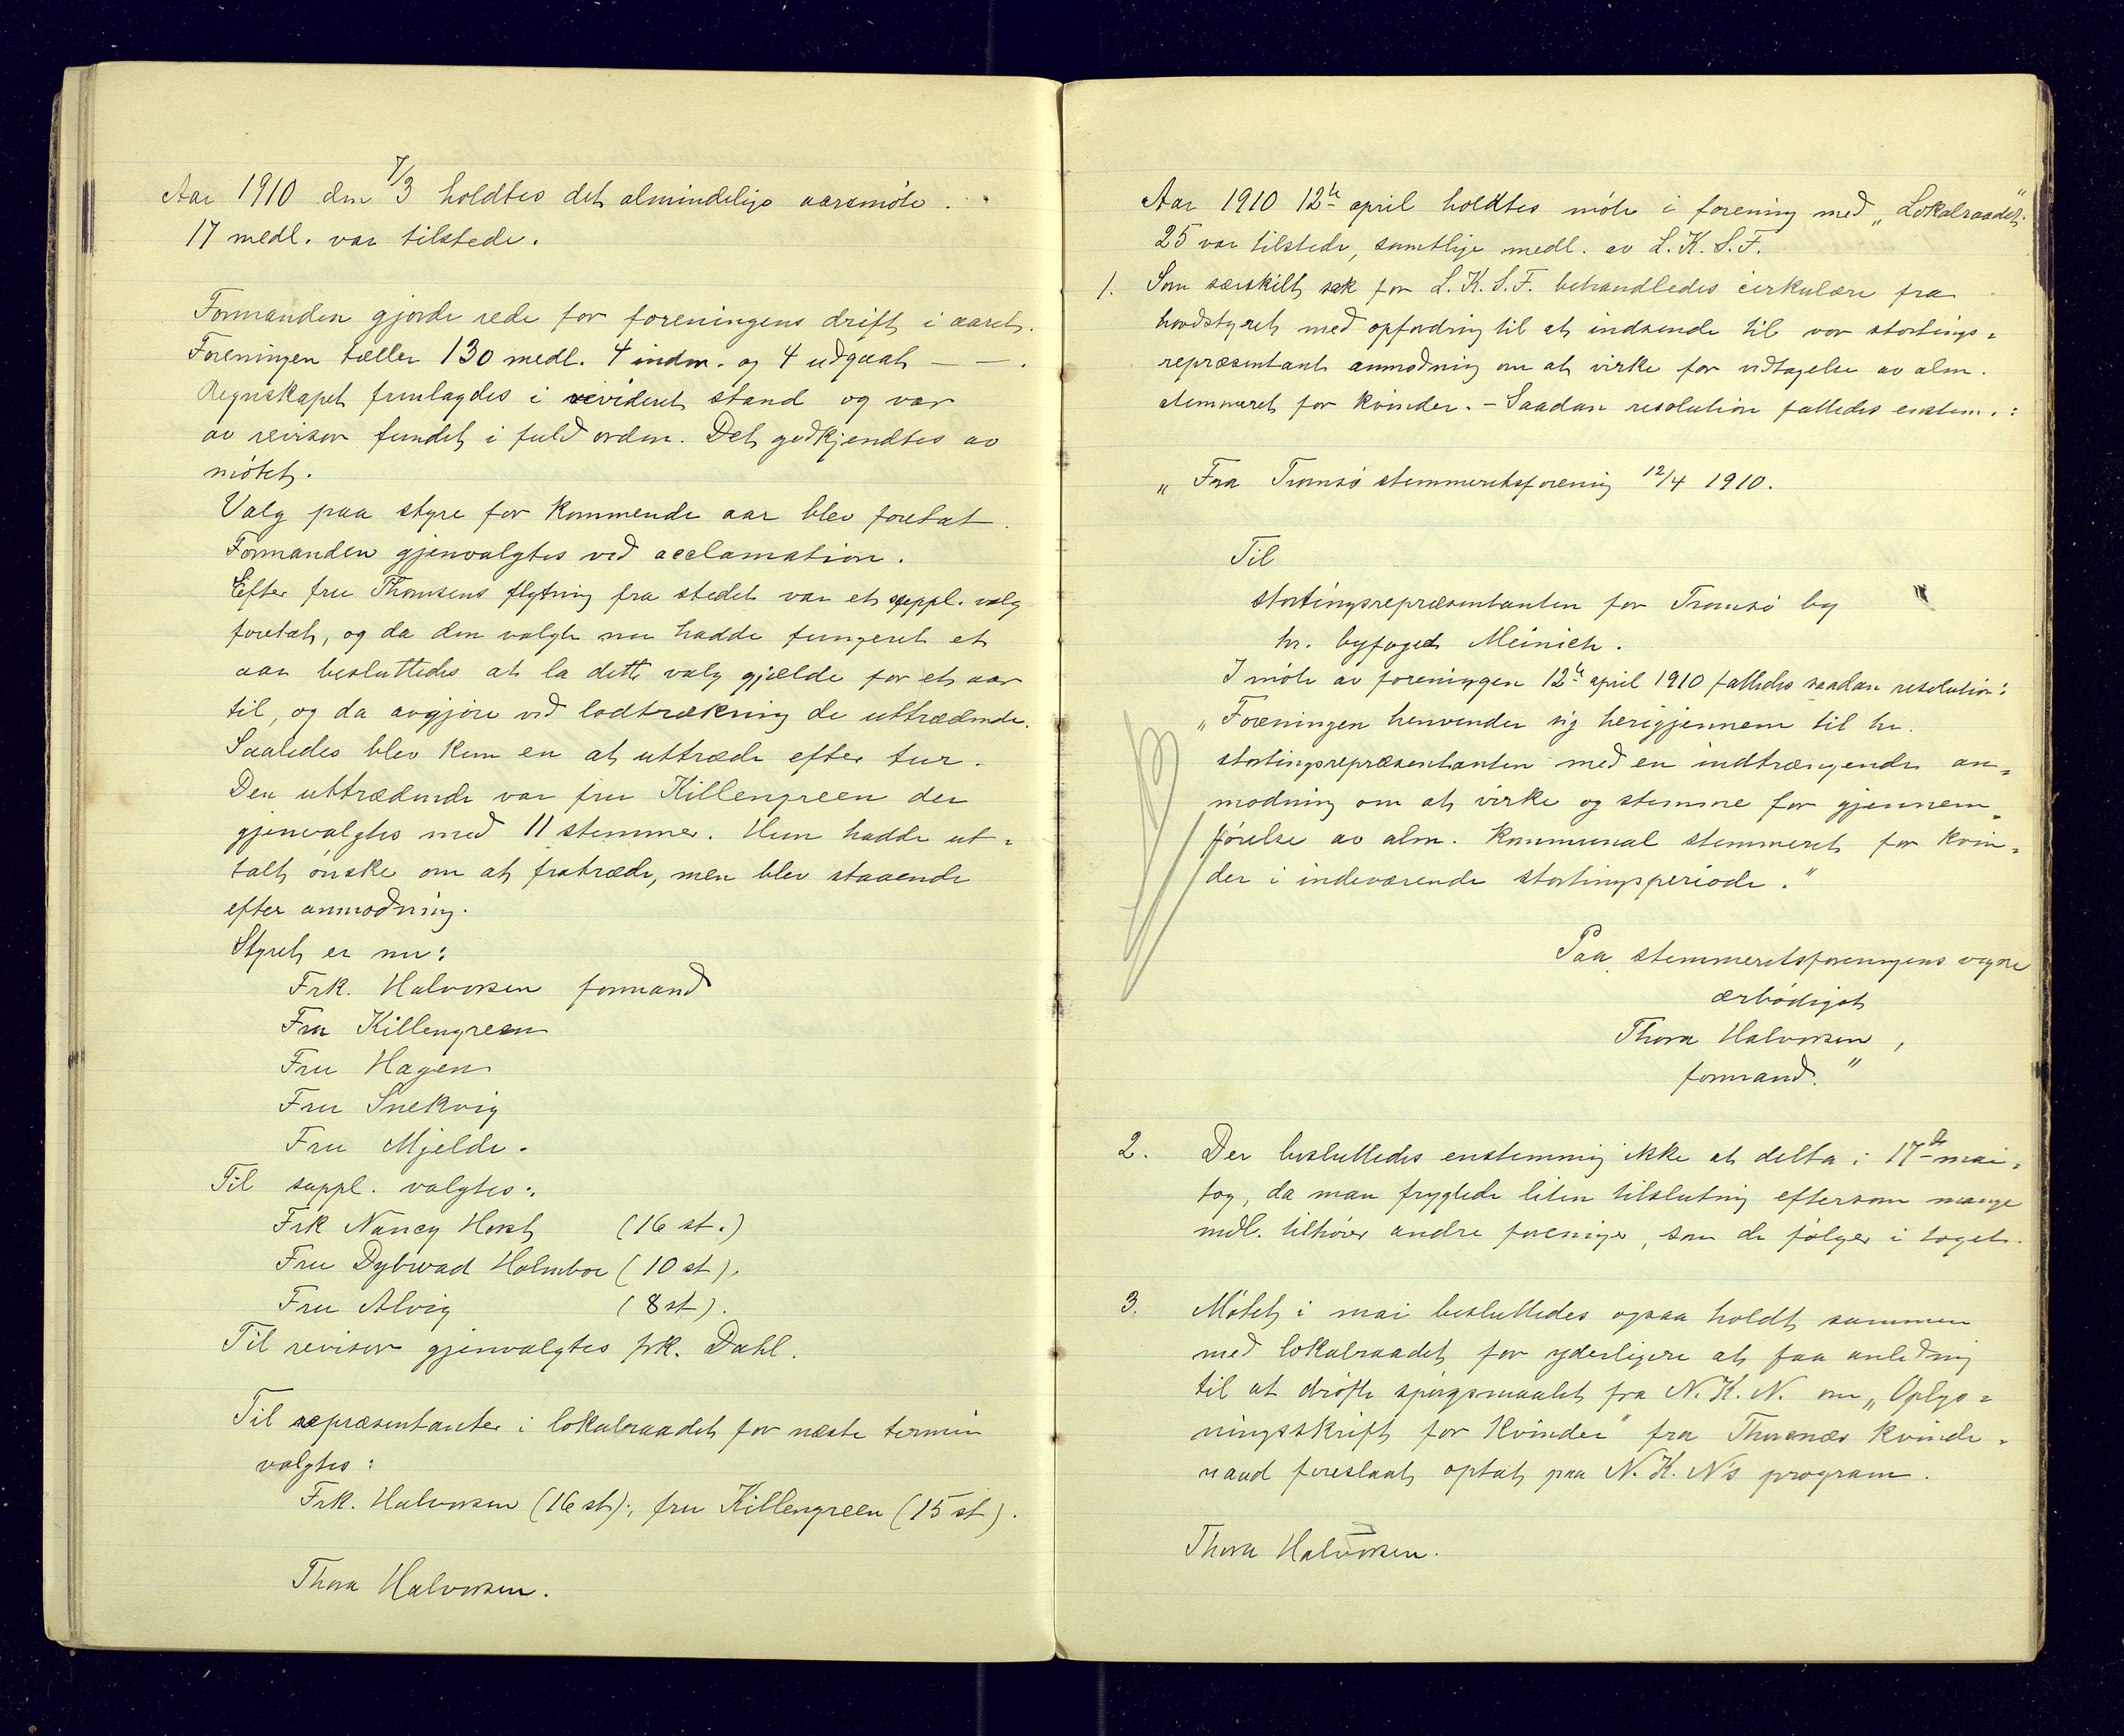 Aar 1910 den 7/3 holdtes det almindelige aarsmöte.
17 medl. var tilstede.
Formanden gjorde rede for foreningens drift i aaret.
Foreningen tæller 130 medl. 4 indm. og 4 udgaat — — .
Regnskapet fremlagdes i revideret stand og var
av revisor fundet i fuld orden. Det godkjendtes av
mötet.
Valg paa styre for kommende aar blev foretat.
Formanden gjenvalgtes ved acclamation.
Efter fru Thomsens flytning fra stedet var et suppl. valg
foretat, og da den valgte nu hadde fungeret et
aar besluttedes at la dette valg gjælde for et aar
til, og da avgjöre ved lodtrækning de uttrædende.
Saaledes blev kun en at uttræde efter tur.
Den uttrædende var fru Killengreen der
gjenvalgtes med 11 stemmer. Hun hadde ut=
talt önske om at fratræde, men blev staaende
efter anmodning.
Styret er nu:
Frk. Halvorsen formand
Fru Killengreen
Fru Hagen
Fru Snekvig
Fru Mjelde.
Til suppl. valgtes:
Frk Nancy Horst (16 st.)
Fru Dybwad Holmboe (10 st).
Fru Alvig (8 st).
Til revisor gjenvalgtes frk. Dahl.
Til repræsentanter i lokalraadet for næste termin
valgtes:
Frk. Halvorsen (16 st), fru Killengreen (15 st).
Thora Halvorsen.
Aar 1910 12te april holdtes möte i forening med „Lokalraadet".
25 var tilstede, samtlige medl. av L.K.S.F.
1. Som særskilt sak for L.K.S.F. behandledes cirkulære fra
hovdstyret med opfordring til at indsende til vor stortings=
repræsentant anmodning om at virke for vedtagelse av alm.
stemmeret for kvinder. – Saadan resolution fattedes enstem.:
„Fra Tromsö stemmeretsforening 12/4 1910.
Til
stortingsrepræsentanten for Tromsö by
hr. byfoged Meinich.
I möte av foreningen 12te april 1910 fattedes saadan resolution:
„Foreningen henvender sig herigjennem til hr.
stortingsrepræsentanten med en indtrængende an=
modning om at virke og stemme for gjennem=
förelse av alm. kommunal stemmeret for kvin=
der i indeværende stortingsperiode."
Paa stemmeretsforeningens vegne
ærbödigst
Thora Halvorsen,
formand."
2. Der besluttedes enstemmig ikke at delta i 17de mai=
tog, da man frygtede liten tilslutning eftersom mange
medl. tilhörer andre foreninger, som de fölger i toget.
3. Mötet i mai besluttedes ogsaa holdt sammen
med lokalraadet for yderligere at faa anledning
til at dröfte spörgsmaalet fra N.K.N. om „Oplys=
ningsskrift for Kvinder" fra Thurnæs kvinde=
raad foreslaat optat paa N.K.N's program.
Thora Halvorsen.